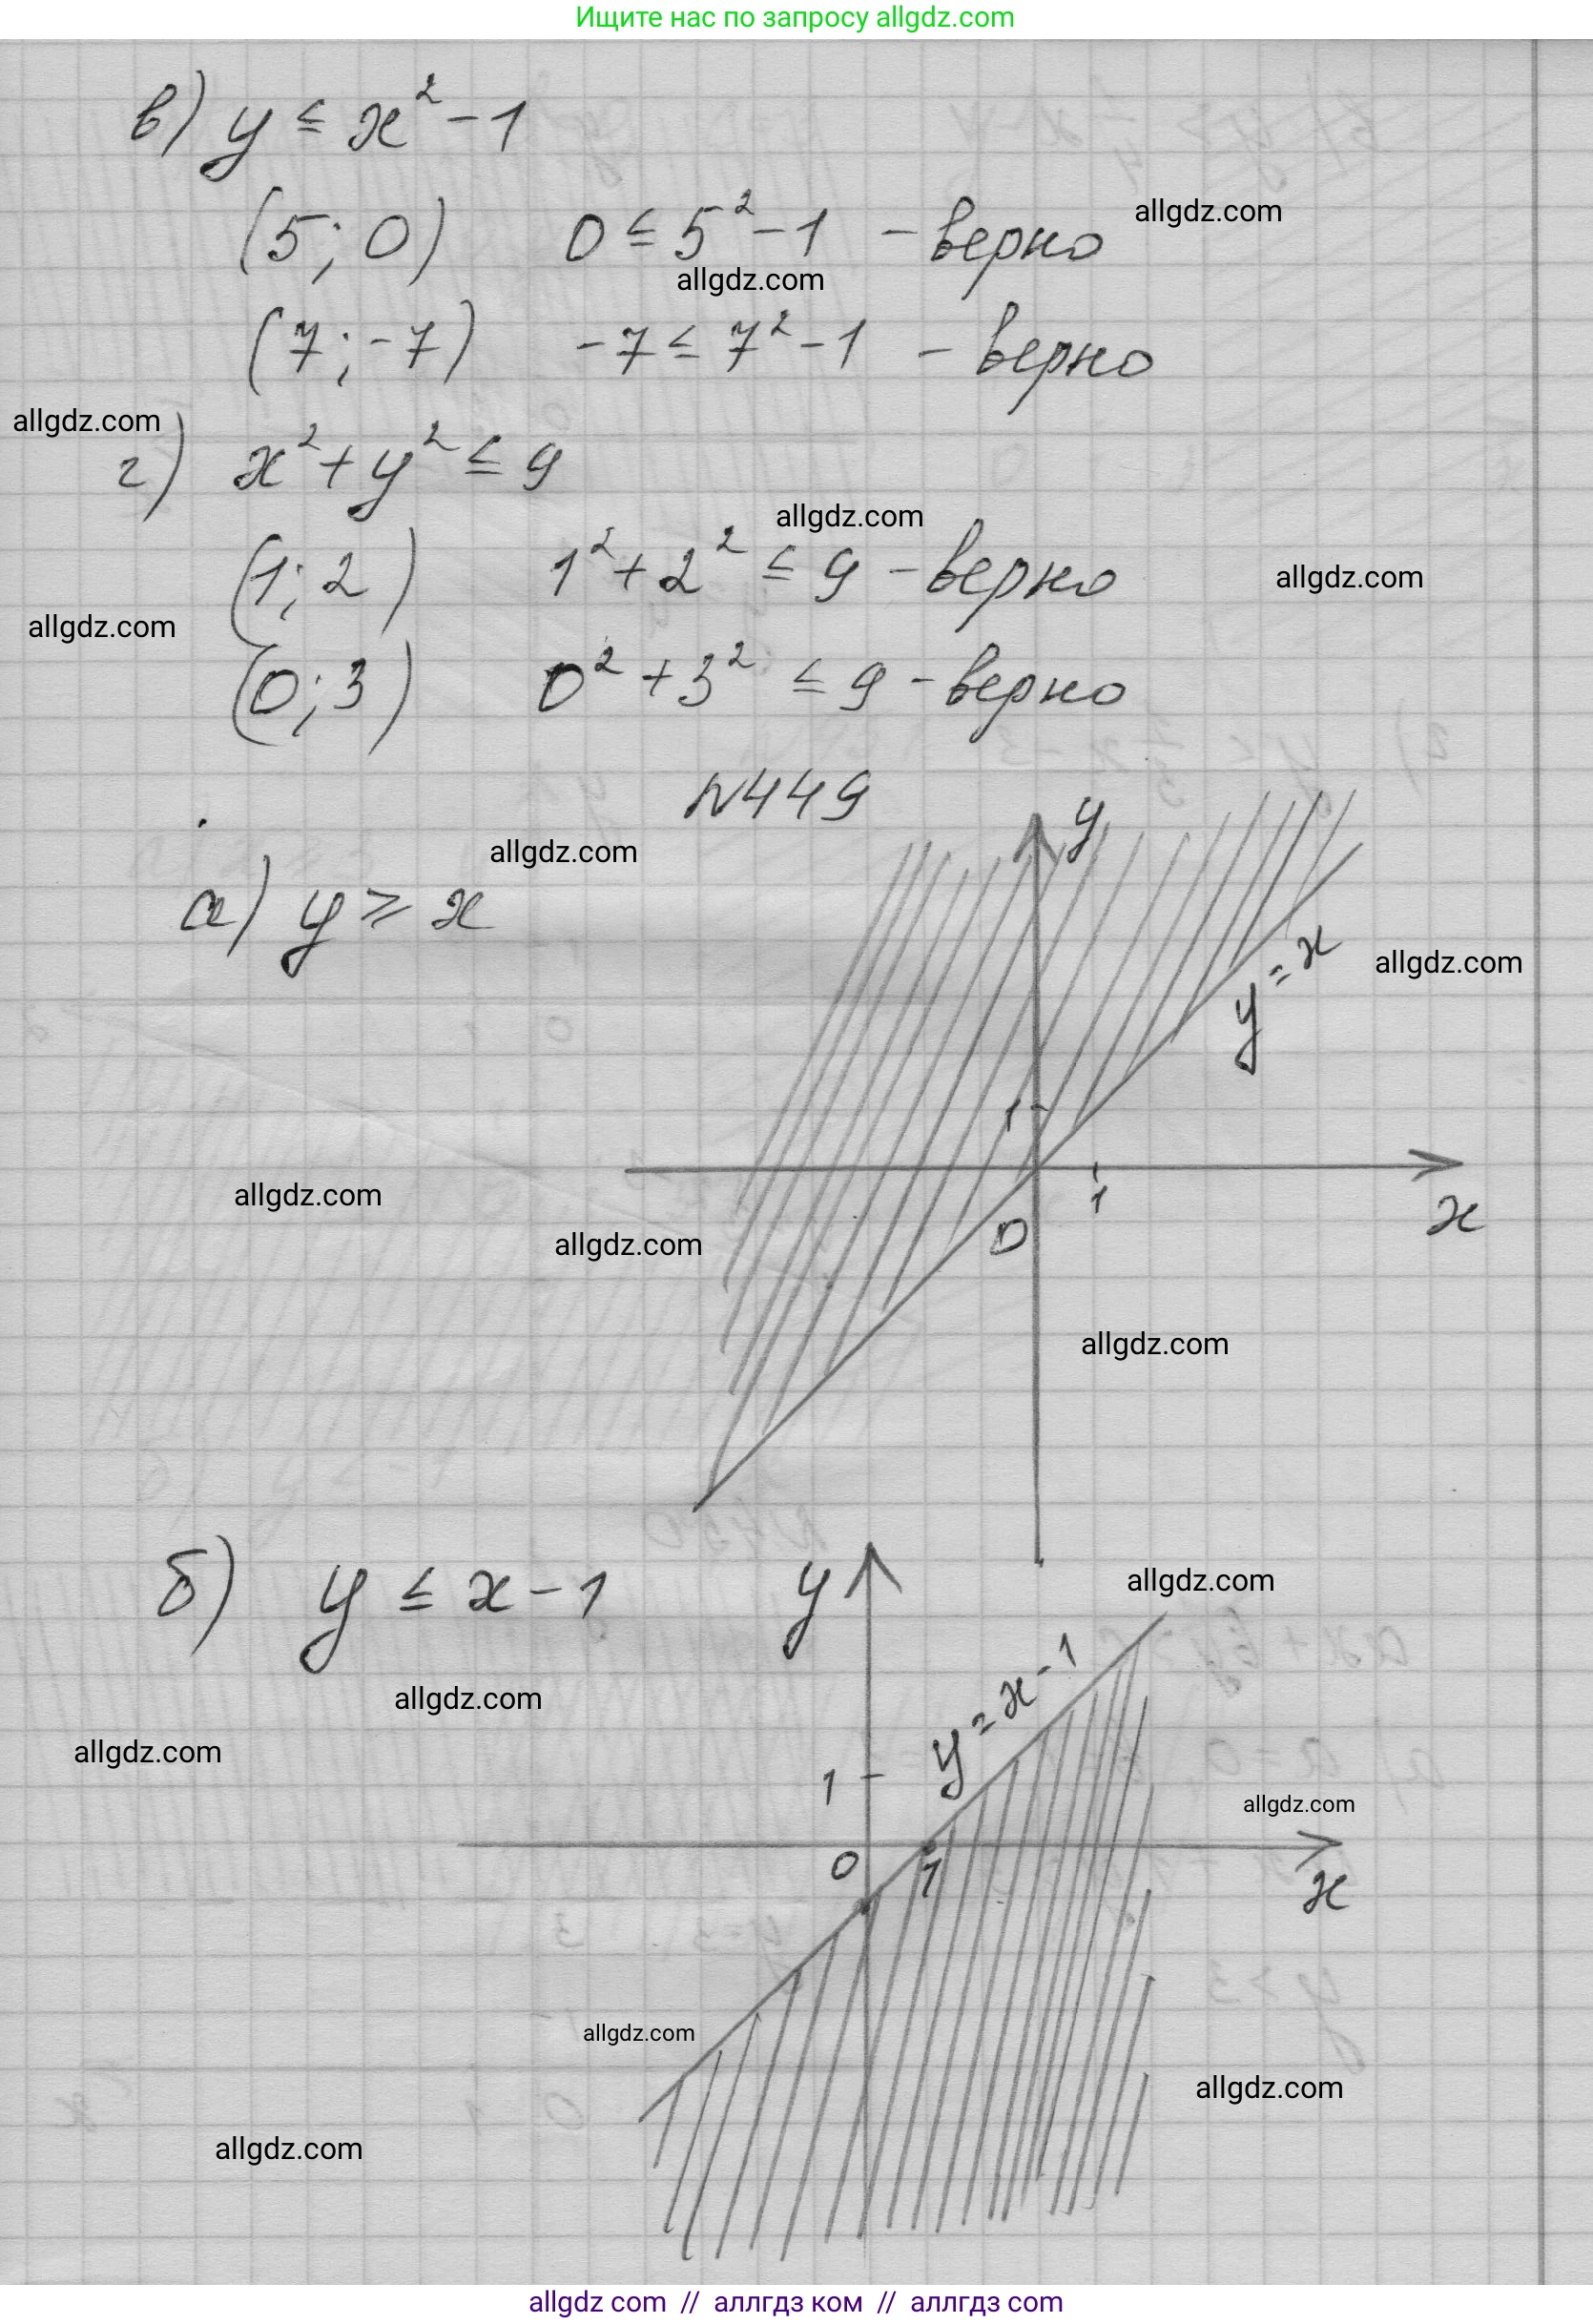 Ищите нас по запросу allgdz.com
в) y ≤ x² - 1
(5; 0) 0 ≤ 5² - 1 - верно
allgdz.com
allgdz.com
(7; -7) -7 ≤ 7² - 1 - верно
allgdz.com
г) x² + y² ≤ 9
allgdz.com
(1; 2) 1² + 2² ≤ 9 - верно
allgdz.com
allgdz.com
(0; 3) 0² + 3² ≤ 9 - верно
N449
y
allgdz.com
а) y ≥ x
y = x
allgdz.com
1
allgdz.com
1
x
0
allgdz.com
allgdz.com
б) y ≤ x - 1
y
allgdz.com
y = x - 1
allgdz.com
allgdz.com
1
allgdz.com
0
1
x
allgdz.com
allgdz.com
allgdz.com
allgdz com // аллгдз ком // аллгдз com